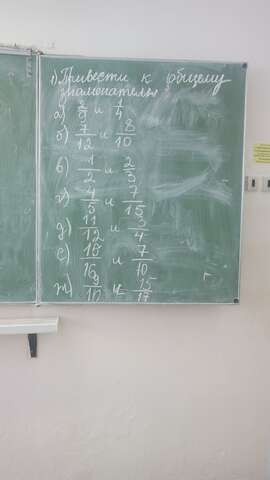 1) Привести к общему
знаменателю
а) 2/9 и 1/4
б) 7/12 и 8/10
в) 1/2 и 2/3
г) 4/5 и 7/15
д) 11/12 и 3/4
е) 10/16 и 7/10
ж) 9/10 и 15/17